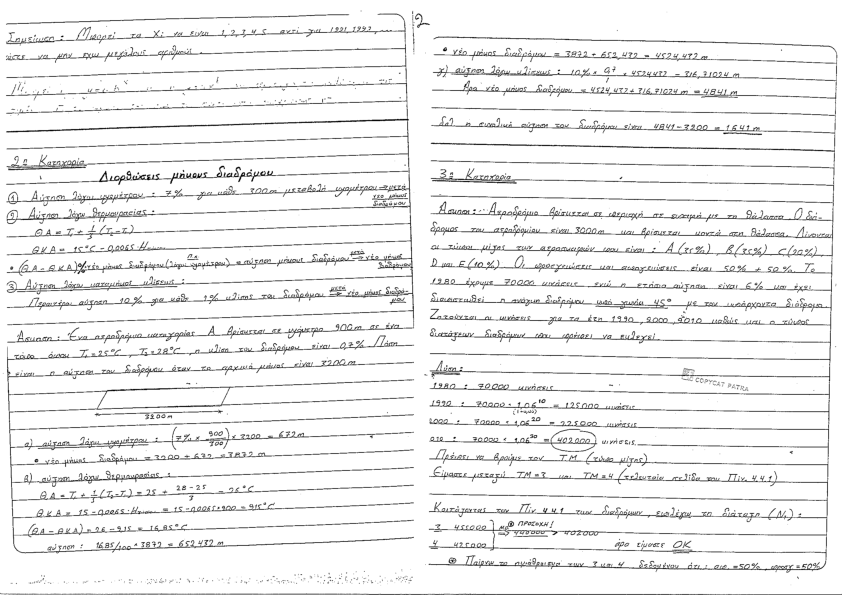 Σημείωση: Μπορεί τα Χi να ειναι 1,2,3,4,5 αντί για 1991,1992,...
ώστε να μην εχω μεγάλους αριθμούς.
2η Κατηγορία
Διορθώσεις μήκους διαδρόμου
① Αύξηση λόγω υψομέτρου: 7% για κάθε 300m μεταβολή υψομέτρου μετά → νέο μήκος διαδρόμου
② Αύξηση λόγω θερμοκρασίας:
ΘΑ = Τ₁ + 1/3 (Τ₂-Τ₁)
ΘΚΑ = 15°C - 0,0065·Η
• (ΘΑ-ΘΚΑ)% πχ νέο μήκος διαδρόμου (λόγω υψομέτρου) = αύξηση μήκους διαδρόμου μετά → νέο μήκος διαδρόμου
③ Αύξηση λόγω καταμήκος κλίσεως:
Περαιτέρω αύξηση 10% για κάθε 1% κλίση του διαδρόμου μετά → νέο μήκος διαδρόμου
Άσκηση: Ένα αεροδρόμιο κατηγορίας Α βρίσκεται σε υψόμετρο 900m σε ένα
τόπο όπου Τ₁=25°C, Τ₂=28°C, η κλίση του διαδρόμου είναι 0,7%. Πόση
είναι η αύξηση του διαδρόμου όταν το αρχικό μήκος είναι 3200m
3200m
α) αύξηση λόγω υψομέτρου: (7% × 900/300) × 3200 = 672m
• νέο μήκος διαδρόμου = 3200 + 672 = 3872m
β) αύξηση λόγω θερμοκρασίας:
ΘΑ = Τ₁ + 1/3 (Τ₂-Τ₁) = 25 + 28-25/3 = 26°C
ΘΚΑ = 15 - 0,0065·Η = 15 - 0,0065×900 = 9,15°C
(ΘΑ - ΘΚΑ) = 26 - 9,15 = 16,85°C
αύξηση: 16.85/100 × 3872 = 652,432m
2
• νέο μήκος διαδρόμου = 3872 + 652,432 = 4524,432m
γ) αύξηση λόγω κλίσεως: 10% × 0,7/1 × 4524,432 = 316,71024m
Άρα νέο μήκος διαδρόμου = 4524,432 + 316,71024m = 4841m
δηλ η συνολική αύξηση του διαδρόμου είναι 4841-3200 = 1641m
3η Κατηγορία
Άσκηση: Αεροδρόμιο βρίσκεται σε περιοχή σε επαφή με τη θάλασσα. Ο διά-
δρομος του αεροδρομίου είναι 3000m και βρίσκεται κοντά στη θάλασσα. Δίνονται
οι τύποι μίξης των αεροσκαφών που είναι: Α(35%), Β(35%), C(20%),
D και Ε(10%). Οι προσγειώσεις και απογειώσεις είναι 50% + 50%. Το
1980 έχουμε 70000 κινήσεις, ενώ η ετήσια αύξηση είναι 6% και έχει
διαπιστωθεί η ανάγκη διαδρόμου υπό γωνία 45° με τον υπάρχοντα διάδρομο.
Ζητούνται οι κινήσεις για τα έτη 1990, 2000, 2010 καθώς και ο τύπος
διατάξεως διαδρόμων που πρέπει να επιλεγεί.
Λύση:
COPYCAT PATRA
1980: 70000 κινήσεις
1990: 70000·1,06¹⁰ = 125000 κινήσεις
(1+0,06)
2000: 70000·1,06²⁰ = 225000 κινήσεις
2010: 70000·1,06³⁰ = 402000 κινήσεις
Πρέπει να βρούμε τον ΤΜ (τύπο μίξης)
Είμαστε μεταξύ ΤΜ=3 και ΤΜ=4 (τελευταία σελίδα του Πιν. 4.4.1)
Κοιτάζοντας τον Πιν. 4.4.1 των διαδρόμων, επιλέγω τη διάταξη (Ν₁)
3 455000 } μο ⊛ ΠΡΟΣΟΧΗ!
⇒ 440000 > 402000
4 425000 } άρα είμαστε ΟΚ
⊛ Παίρνω το ημιάθροισμα των 3 και 4, δεδομένου ότι: απογ.=50%, προσγ=50%